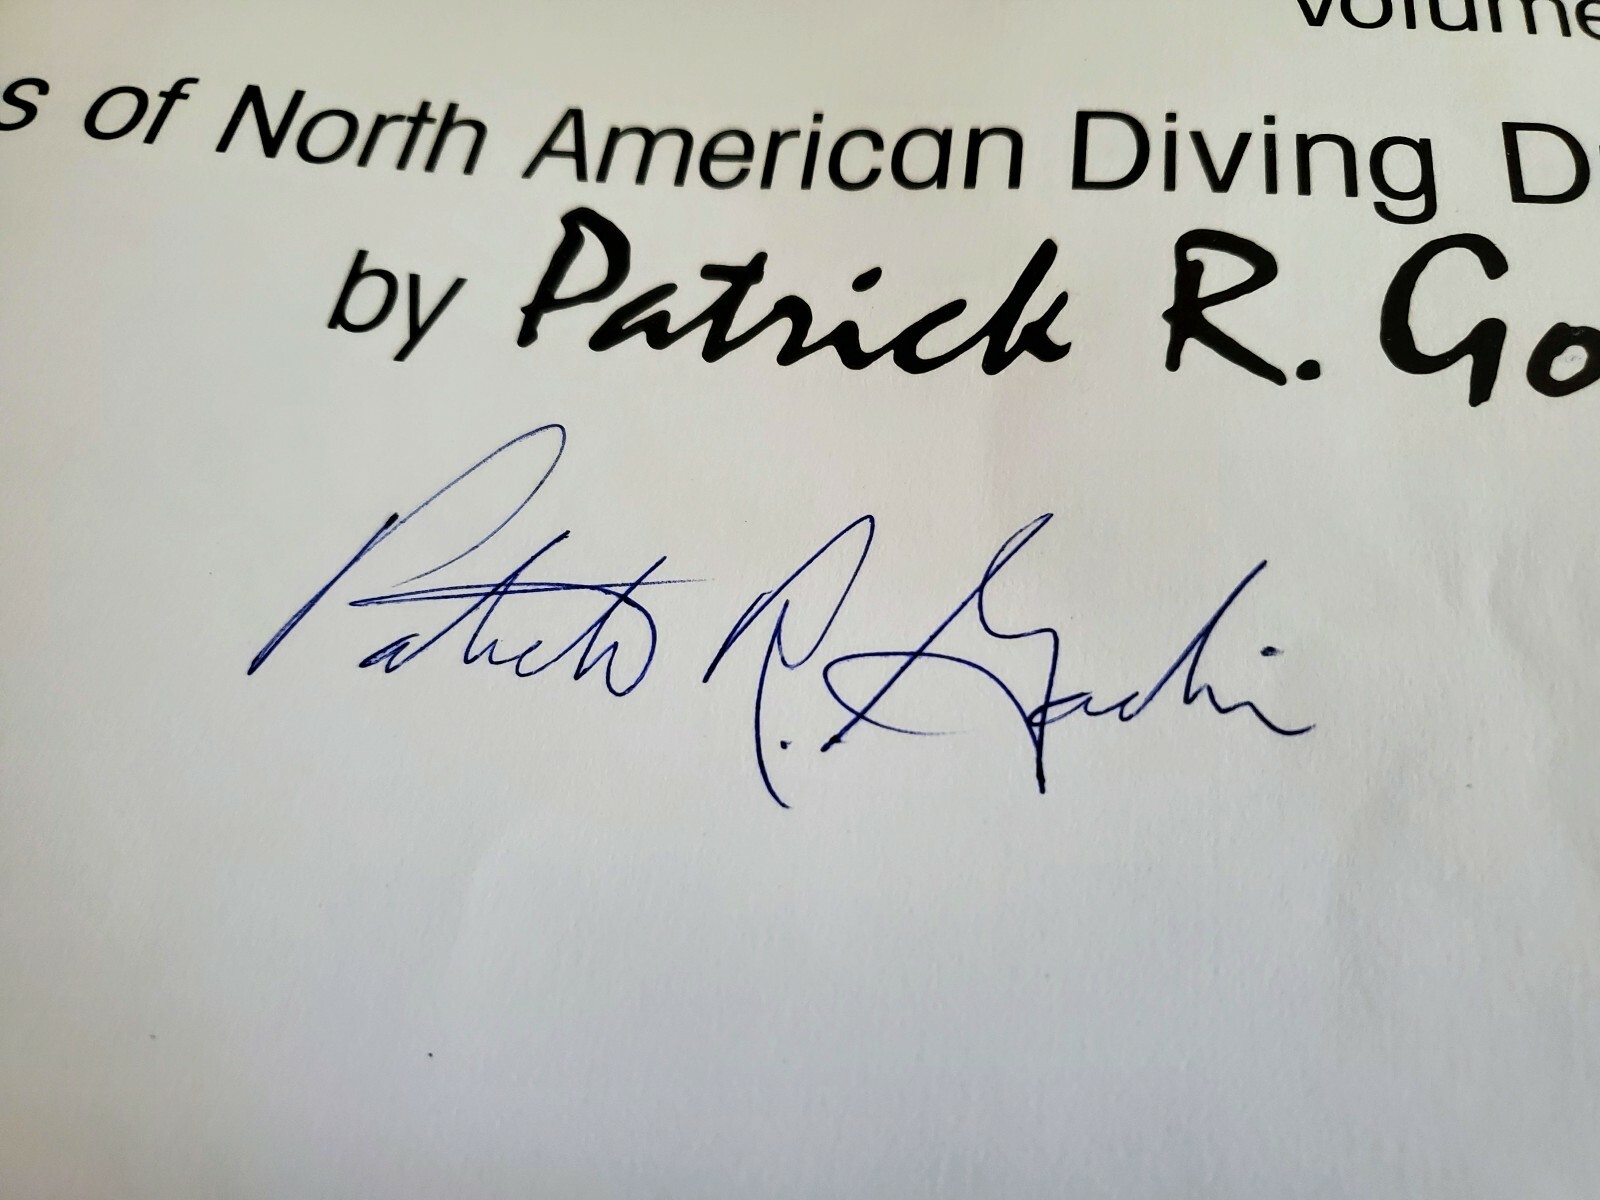 Volume
s of North American Diving D
by Patrick R. Go
Patrick R. Godin